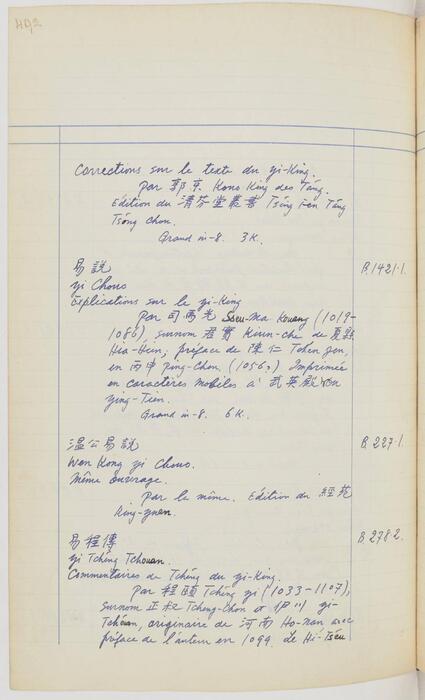 492
Corrections sur le texte du Yi-King.
par 郭京 Kouo King des Táng.
Edition du 清芬堂叢書 Tsíng Fen Táng
Tsóng chou.
Grand in-8. 3 K.
易說 B.1421.1.
Yi Chouo
Explications sur le Yi-King
Par 司馬光 Sseu-Ma Kouang (1019-
1086), surnom 君實 Kiun-che de 夏縣
Hia-Hien; préface de 陳仁 Tchen Jen,
en 丙申 Ping-Chen. (1056?) Imprimée
en caractères mobiles à 武英殿
Ying-Tien.
Grand in-8. 6 K.
温公易說 B.227.1.
Wen Kong Yi Chouo.
Même ouvrage.
Par le même. Edition du 經苑
King-yuen.
易程傳 B.278.2.
Yi Tchéng Tchouan.
Commentaires de Tchéng du Yi-King.
Par 程頤 Tchéng Yi (1033-1107),
surnom 正叔 Tcheng-Chou et 伊川 Yi-
Tchouan, originaire de 河南 Ho-nan avec
préface de l'auteur en 1099. Le Hi-Tséu